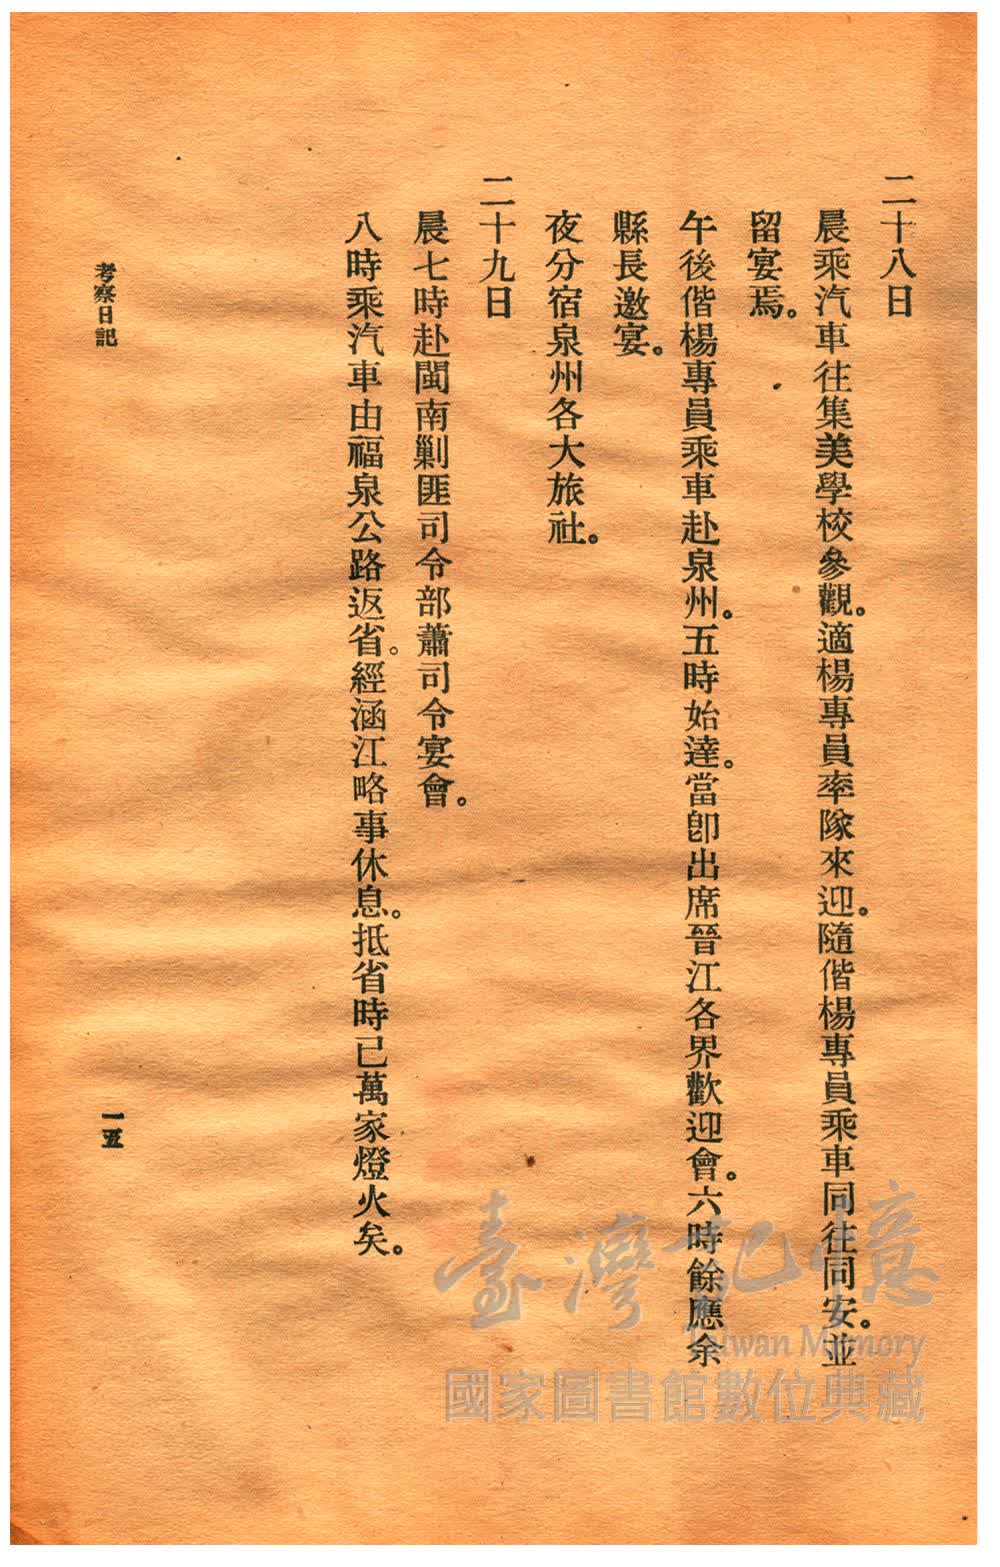 二十八日
晨乘汽車往集美學校參觀。適楊專員率隊來迎。隨偕楊專員乘車同往同安。並
留宴焉。
午後偕楊專員乘車赴泉州。五時始達。當卽出席晉江各界歡迎會。六時餘應余
縣長邀宴。
夜分宿泉州各大旅社。
二十九日
晨七時赴閩南剿匪司令部蕭司令宴會。
八時乘汽車由福泉公路返省。經涵江略事休息。抵省時已萬家燈火矣。
考察日記
一五
臺灣記憶
Taiwan Memory
國家圖書館數位典藏